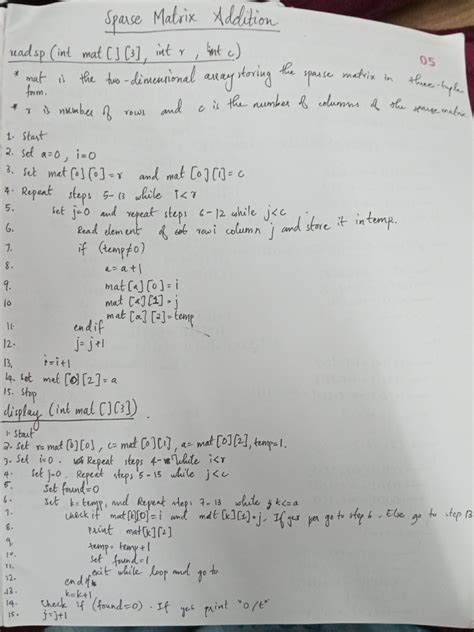 Sparse Matrix Addition
05
readsp (int mat[][3], int r, int c)
* mat is the two-dimensional array storing the sparse matrix in three-tuple
form.
* r is number of rows and c is the number of columns of the sparse matrix
1. Start
2. Set a=0, i=0
3. Set mat[0][0]=r and mat[0][1]=c
4. Repeat steps 5-13 while i<r
5. Set j=0 and repeat steps 6-12 while j<c
6. Read element of row i column j and store it in temp.
7. if (temp≠0)
8. a=a+1
9. mat[a][0]=i
10 mat[a][1]=j
mat[a][2]=temp
11. endif
12. j=j+1
13. i=i+1
14. Set mat[0][2]=a
15. Stop
display (int mat[][3])
1. Start
2. Set r=mat[0][0], c=mat[0][1], a=mat[0][2], temp=1.
3. Set i=0. Repeat steps 4- while i<r
4. Set j=0. Repeat steps 5-15 while j<c
5. Set found=0
6. Set k=temp, and Repeat steps 7-13 while k<=a
7. check if mat[k][0]=i and mat[k][1]=j. If yes go to step 6. Else go to step 13
8. print mat[k][2]
9. temp=temp+1
10. set found=1
11. exit while loop and go to
12. endif
13. k=k+1
14. Check if (found=0). If yes print "0/t"
15. j=j+1